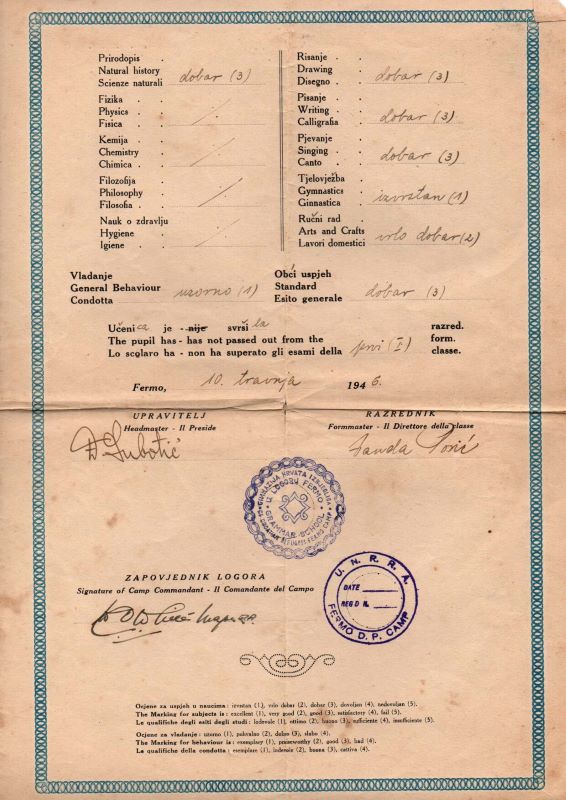 Prirodopis .
Natural history
Scienze naturali dobar (3)
Fizika . .
Physics .
Fisica . . /
Kemija . .
Chemistry
Chimica . . /
Filozofija
Philosophy
Filosofia . . /
Nauk o zdravlju
Hygiene
Igiene . . /
Risanje . .
Drawing .
Disegno . . dobar (3)
Pisanje . .
Writing . .
Calligrafia . dobar (3)
Pjevanje .
Singing . .
Canto . . dobar (3)
Tjelovježba
Gymnastics
Ginnastica . izvrstan (1)
Ručni rad .
Arts and Crafts
Lavori domestici vrlo dobar (2)
Vladanje
General Behaviour
Condotta uzorno (1)
Obći uspjeh
Standard
Esito generale dobar (3)
Učenica je - nije svršila razred.
The pupil has - has not passed out from the form.
Lo scolaro ha - non ha superato gli esami della prvi (I) classe.
Fermo, 10. travnja 1946.
UPRAVITELJ
Headmaster - Il Preside
D Subotić
RAZREDNIK
Formmaster - Il Direttore della classe
GIMNAZIJA HRVATA IZBJEGLICA
U LOGORU FERMO
GRAMMAR SCHOOL
CROATIAN REFUGEES FERMO CAMP
ZAPOVJEDNIK LOGORA
Signature of Camp Commandant - Il Comandante del Campo
U. N. R. R. A.
DATE
REG'D N.
FERMO D. P. CAMP
Ocjene za uspjeh u naucima: izvrstan (1), vrlo dobar (2), dobar (3), dovoljan (4), nedovoljan (5).
The Marking for subjects is: excellent (1), very good (2), good (3), satisfactory (4), fail (5).
Le qualifiche degli esiti degli studi: lodevole (1), ottimo (2), buono (3), sufficiente (4), insufficiente (5).
Ocjene za vladanje: uzorno (1), pohvalno (2), dobro (3), slabo (4).
The Marking for behaviour is: exemplary (1), praiseworthy (2), good (3), bad (4).
Le qualifiche della condotta: esemplare (1), lodevole (2), buona (3), cattiva (4).